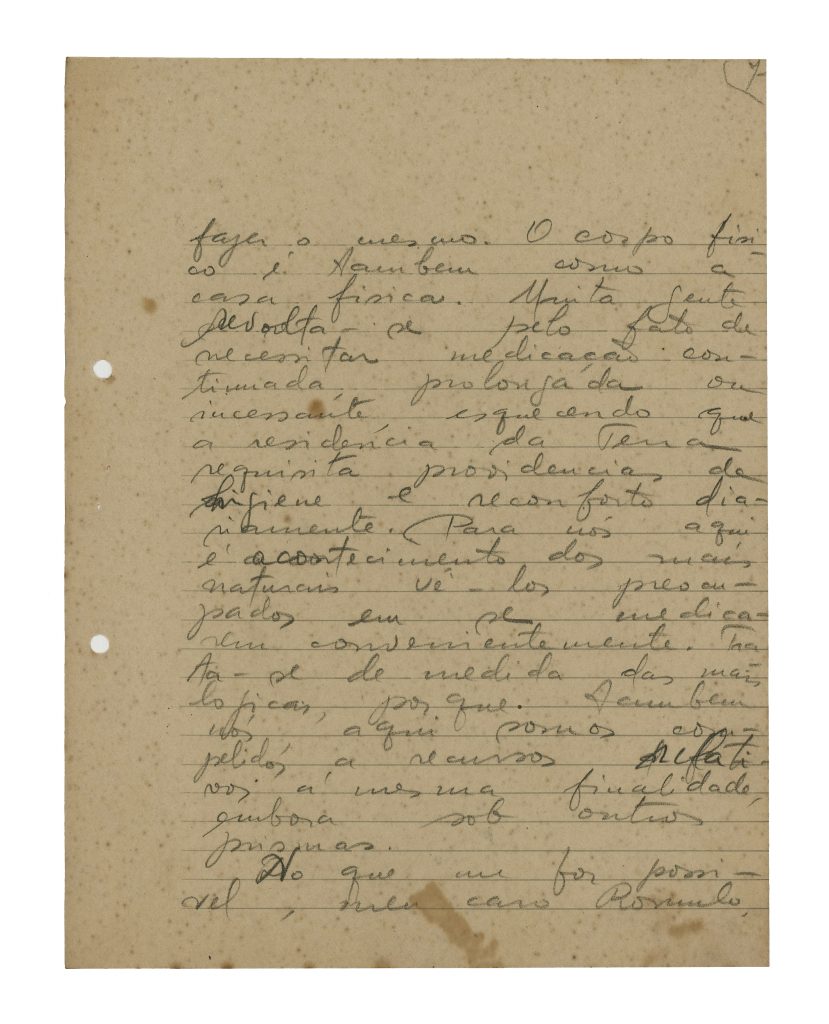 7
fazer o mesmo. O corpo físi-
co é tambem como a
casa fisica. Muita gente
revolta-se pelo fato de
necessitar medicação con-
tinuada, prolongada ou
incessante esquecendo que
a residencia da Terra
requisita providencias de
higiene e reconforto dia-
riamente. Para nós aqui
é acontecimento dos mais
naturais vê-los preocu-
pados em se medica-
rem convenientemente. Tra
ta-se de medida das mais
logicas, porque. tambem
nós, aqui somos com-
pelidos a recursos relati-
vos á mesma finalidade,
embora sob outros
prismas.
No que me for possi-
vel, meu caro Romulo,